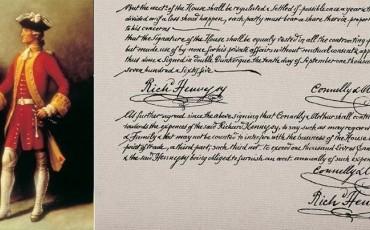 that the accts of the House shall be regulated & Settled if possible once a year &
divided or if a loss should happen, each party must bear a share therein propor
to his concerns
that the Signature of the House shall be equally vested in all the contracting p
but made use of by none for his private affairs without mutual consent & app
thus done & Signed in double Dunkerque the tenth day of September one thousan
seven hundred & sixty five
Rich.d Hennessy
Connelly & Ar
All further agreed since the above signing that Connelly & Arthur shall contri
towards the expences of the said Richard Hennessy, to say such as may regard
& Family & that may not be counted to interfere with the business of the House
point of trade, a third part, such third not to exceed one thousand Livres
& the said Hennessy being obliged to furnish an acct. annually of such expen
Connelly & Ar
Rich.d Hennessy